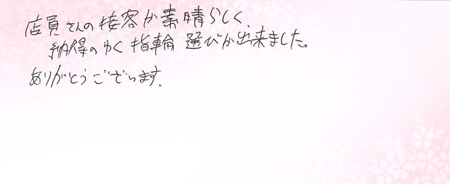 店員さんの接客が素晴らしく、
納得のゆく指輪選びが出来ました。
ありがとうございます.